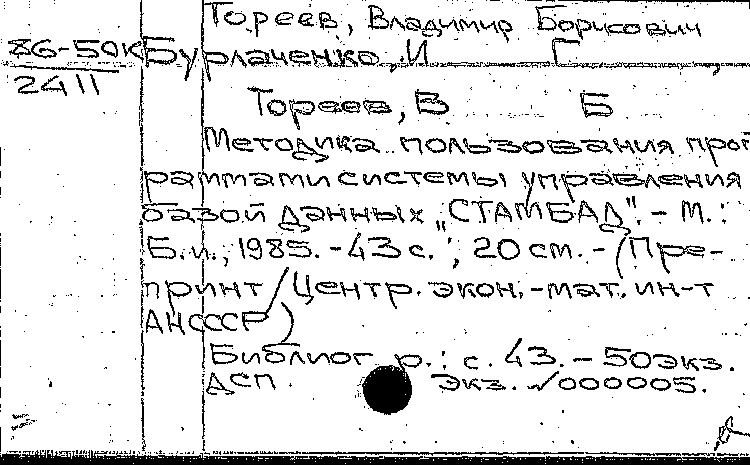 Тореев, Владимир Борисович
86-50к Бурлаченко, И Г ,
2411
Тореев, В Б
Методика пользования прог
раммами системы управления
базой данных „СТАМБАД". - М. :
Б.и., 1985. - 43 с. ; 20 см. - (Пре-
принт / Центр. экон.-мат. ин-т
АНСССР)
Библиогр.: с. 43. - 50экз.
ДСП. экз. √000005.